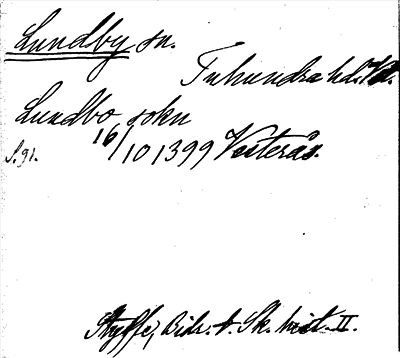 Lundby sn.
Tuhundra hd. Vd.
Lundbo sokn
S. 91. 16/10 1399 Vesterås.
Styffe, Bidr. t. Sk. hist. II.